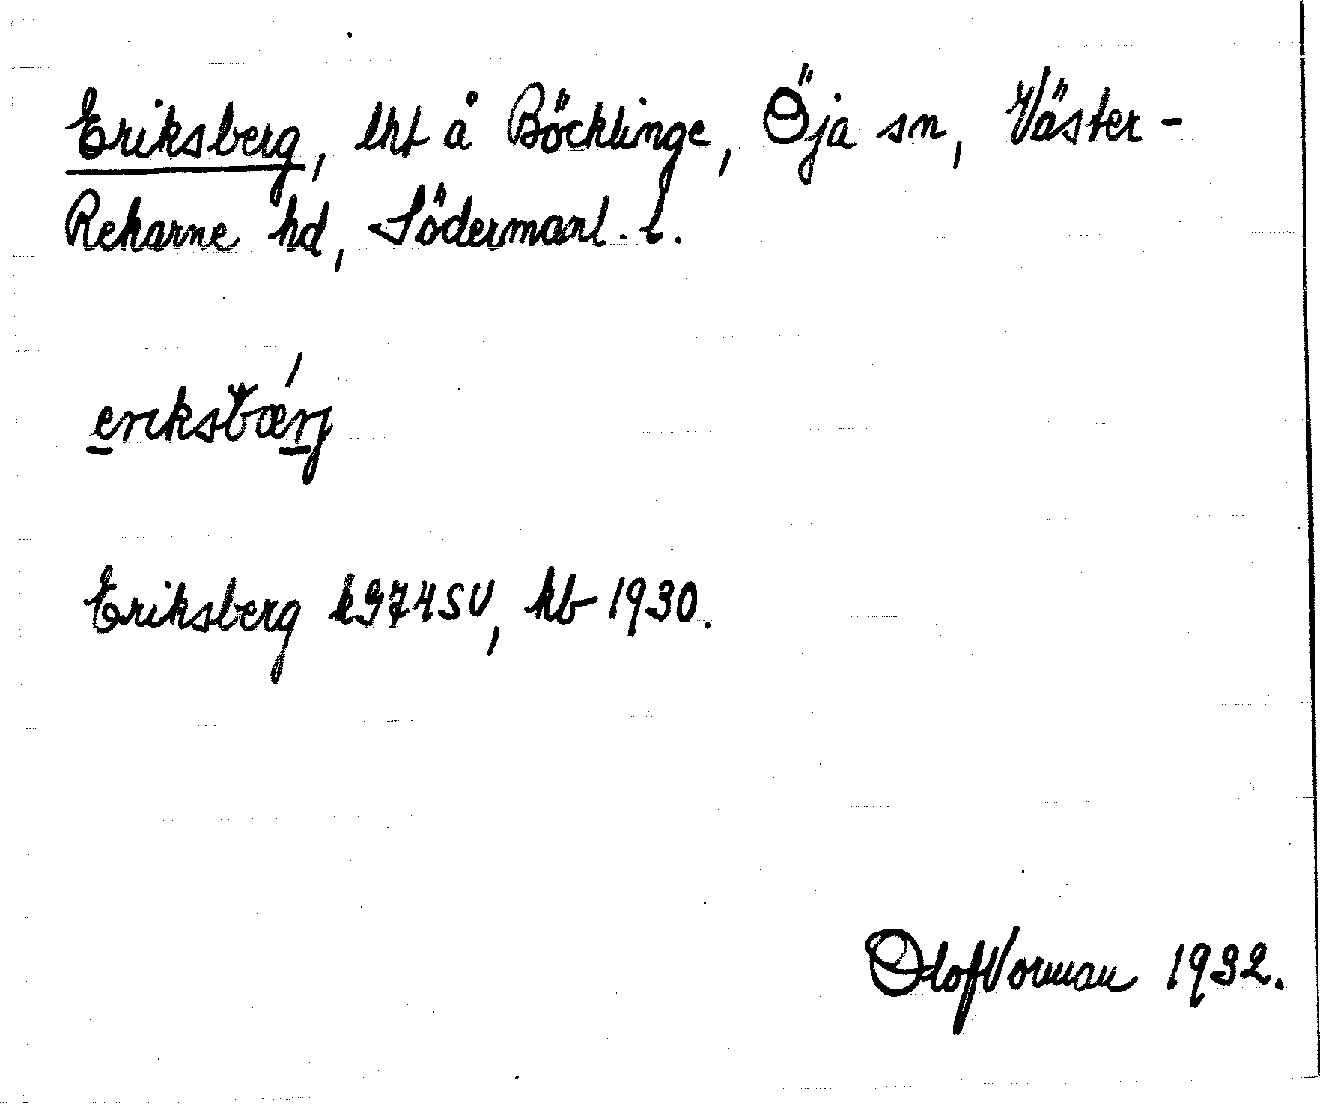 Eriksberg, lht å Böcklinge, Öja sn, Väster-
Rekarne hd, Södermanl. l.
eriksbærj
Eriksberg k974SV, kb 1930.
Olof Vorman 1932.